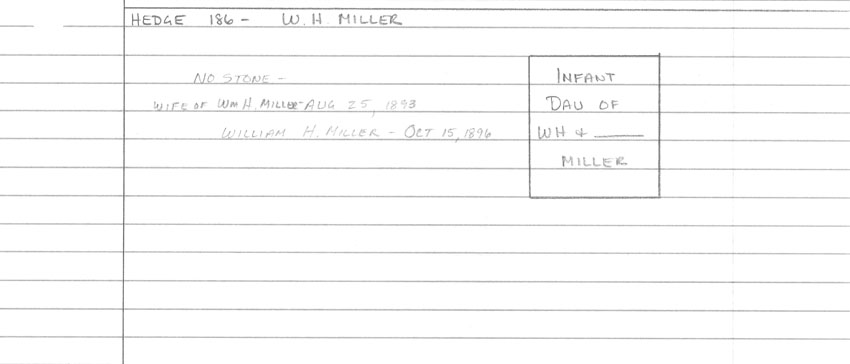 HEDGE 186 - W. H. MILLER
NO STONE -
WIFE OF WM H. MILLER - AUG 25, 1893
WILLIAM H. MILLER - OCT 15, 1896
INFANT
DAU OF
WH & ______
MILLER